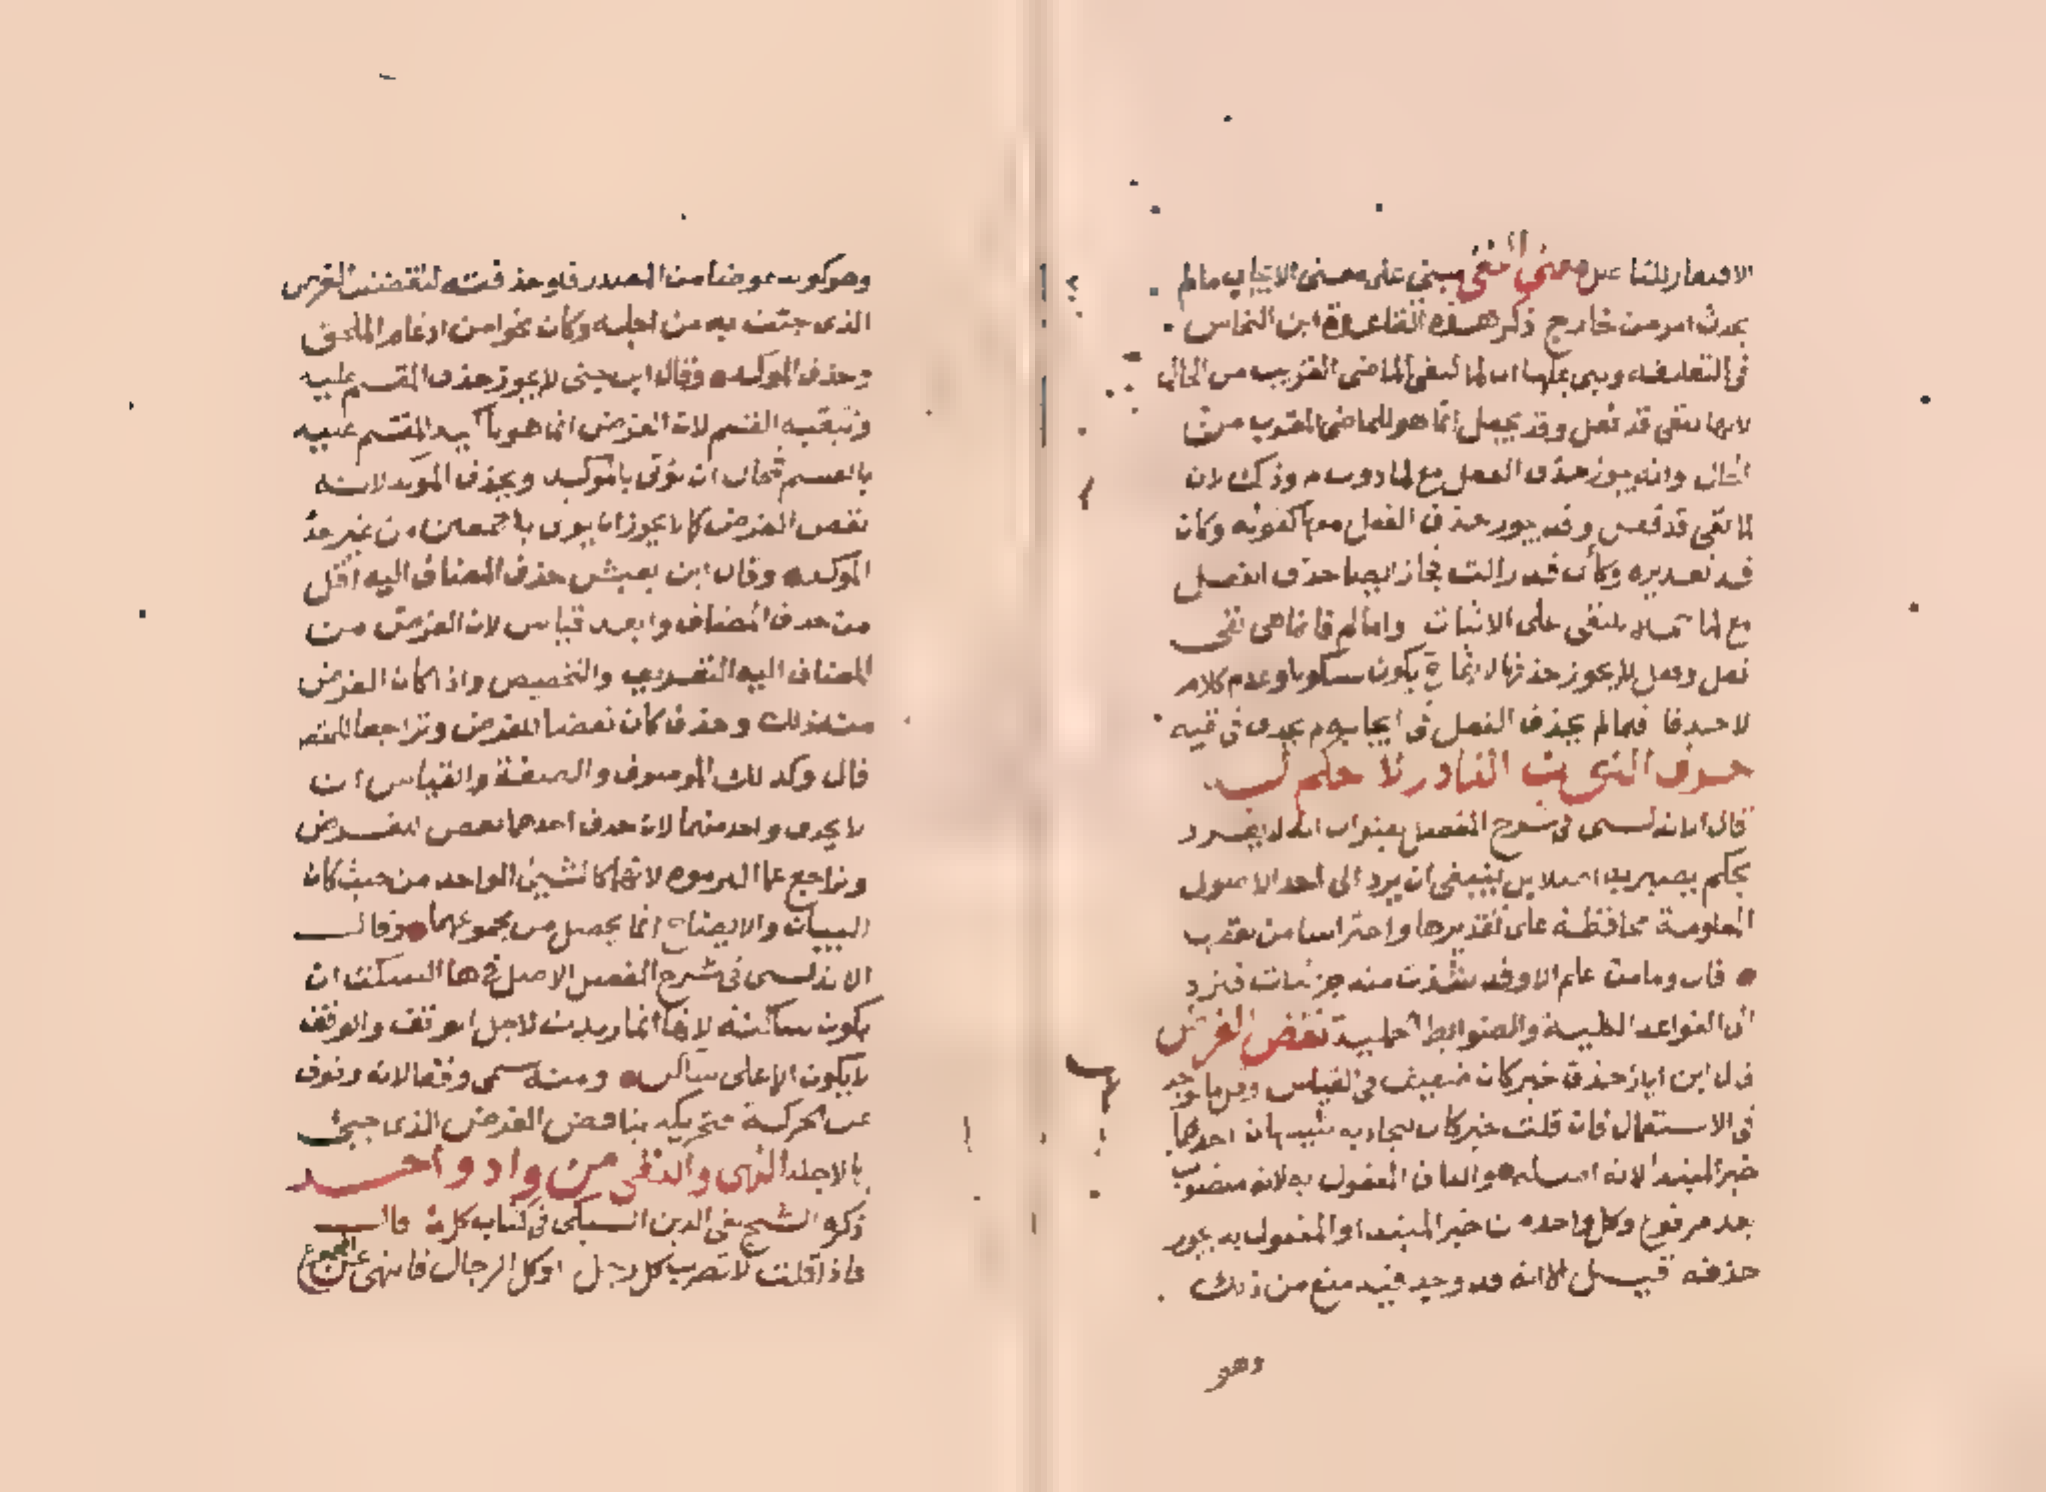 معنى النفى مبنى على معنى الايجاب مالم
يحدث امر من خارج ذكر هذه القاعدة ابن النحاس
فى التعليقة وبنى عليها ان لما لنفى الماضى القريب من الحال
لانها لنفى قد فعل وقد يجعل انما هو للماضى المقرب من
الحال وانه يجوز حذف الفعل مع لما دون لم وذلك لان
لما نفى قد فعل وقد يجوز حذف الفعل معها كقوله وكان
قد تقديره وكأن قد زالت فجاز ايضا حذف الفعل
مع لما حملا للنفى على الاثبات واما لم فانما هى نفى
فعل وفعل لا يجوز حذفها لانها ح يكون سكوتا وعدم كلام
لا حذفا فلما لم يحذف الفعل فى ايجابه لم يحذف فى نفيه
حرف النون النادر لا حكم له
قال الاندلسى فى شرح المفصل
بحكم يصير به اصلا بل ينبغى ان يرد الى احد الاصول
المعلومة محافظة على تقديرها واحتراسا من
قال وما من علم الا وقد شذت منه جزئيات فترد
الى القواعد الكلية والضوابط الجملية نقض الغرض
قال ابن اياز حذف خبر كان ضعيف فى القياس وقل ما يوجد
فى الاستعمال فان قلت خبر كان يتجاذبه شيئان احدهما
خبر المبتدا لانه اصله والثانى المفعول به لانه منصوب
بعد مرفوع وكل واحد من خبر المبتدا والمفعول به يجوز
حذفه قيل الا انه قد وجد فيه منع من ذلك
وهو
وهو كونه عوضا من المصدر فلو حذفته لنقضت الغرض
الذى جئت به من اجله وكان نحوا من ادغام الملحق
وحذف المؤكد وقال ابن جنى لا يجوز حذف المقسم عليه
وتبقية القسم لان الغرض انما هو تأكيد المقسم عليه
بالقسم فمحال ان يؤتى بالتوكيد ويحذف المؤكد لانه
نقض الغرض كما لا يجوز ان يؤتى باجمعين من غير ذكر
المؤكد وقال ابن يعيش حذف المضاف اليه اقل
من حذف المضاف وابعد قياس لان الغرض من
المضاف اليه التعريف والتخصيص واذا كان الغرض
منه ذلك وحذف كان نقضا للغرض وتراجعا للمقصد
قال وكذلك الموصوف والصفة والقياس ان
لا يحذف واحد منهما لان حذف احدهما نقض للغرض
وتراجع عما التزموه لانهما كالشيئ الواحد من حيث كان
البيان والايضاح انما يحصل من مجموعهما وقال
الاندلسى فى شرح المفصل الاصل فى هاء السكت ان
يكون ساكنة لانها انما زيدت لاجل الوقف والوقف
لا يكون الا على ساكن ومنه سمى وقفا لانه وقوف
عن الحركة فتحريكه يناقض الغرض الذى جيئ
بها لاجله النهى والنفى من واد واحد
ذكره الشيخ تقى الدين السبكى فى كتابه كل قال
فاذا قلت لا تضرب كل رجل او كل الرجال فالنهى عن المجموع